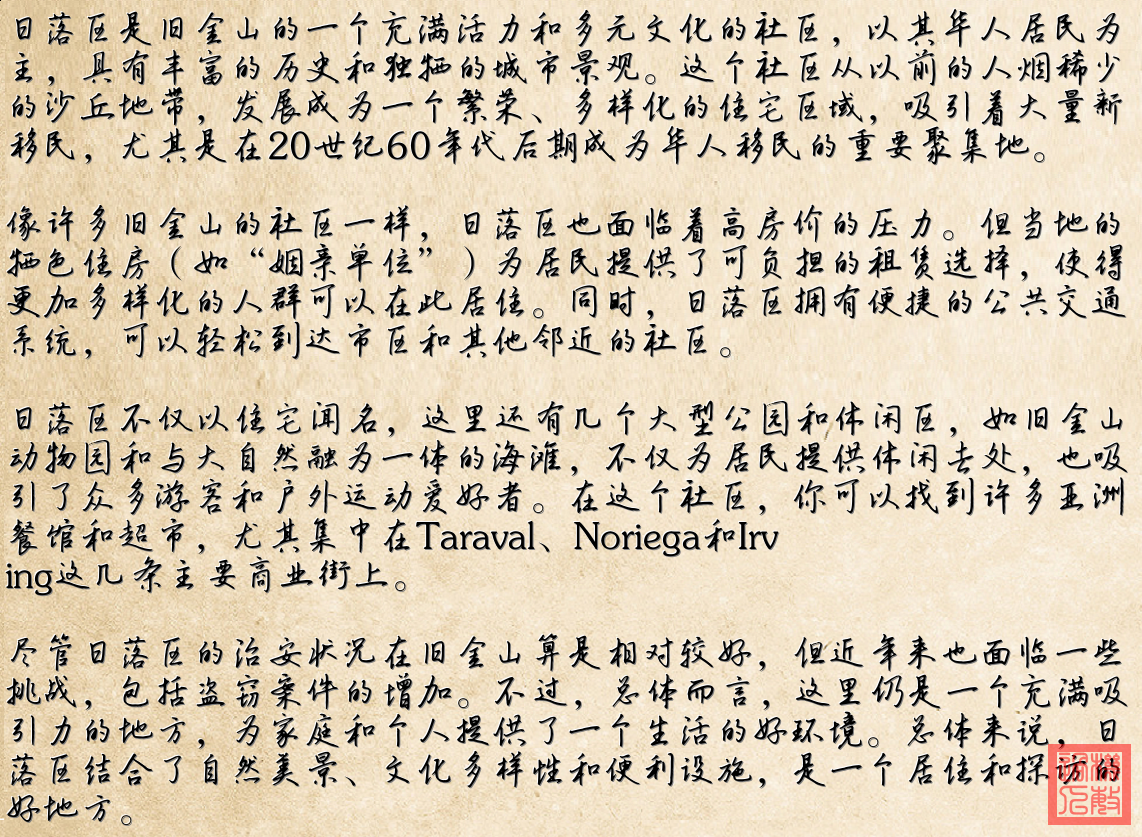 日落区是旧金山的一个充满活力和多元文化的社区，以其华人居民为
主，具有丰富的历史和独特的城市景观。这个社区从以前的人烟稀少
的沙丘地带，发展成为一个繁荣、多样化的住宅区域，吸引着大量新
移民，尤其是在20世纪60年代后期成为华人移民的重要聚集地。
像许多旧金山的社区一样，日落区也面临着高房价的压力。但当地的
特色住房（如“姻亲单位”）为居民提供了可负担的租赁选择，使得
更加多样化的人群可以在此居住。同时，日落区拥有便捷的公共交通
系统，可以轻松到达市区和其他邻近的社区。
日落区不仅以住宅闻名，这里还有几个大型公园和休闲区，如旧金山
动物园和与大自然融为一体的海滩，不仅为居民提供休闲去处，也吸
引了众多游客和户外运动爱好者。在这个社区，你可以找到许多亚洲
餐馆和超市，尤其集中在Taraval、Noriega和Irv
ing这几条主要商业街上。
尽管日落区的治安状况在旧金山算是相对较好，但近年来也面临一些
挑战，包括盗窃案件的增加。不过，总体而言，这里仍是一个充满吸
引力的地方，为家庭和个人提供了一个生活的好环境。总体来说，日
落区结合了自然美景、文化多样性和便利设施，是一个居住和探访的
好地方。